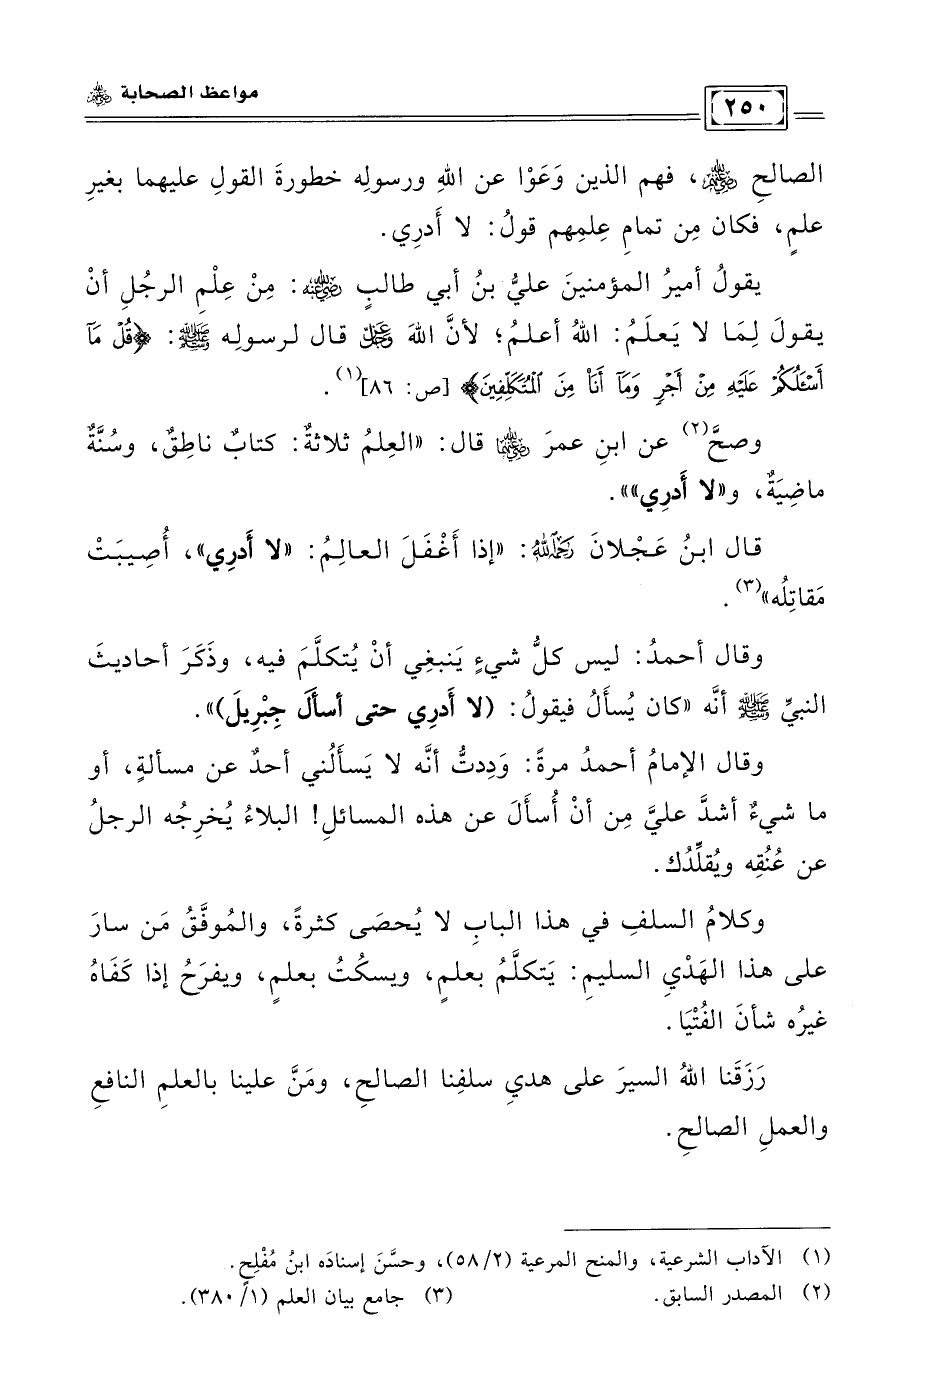 مواعظ الصحابة ﵃
٢٥٠
الصالحِ ﵃، فهم الذين وَعَوْا عن اللهِ ورسولِه خطورةَ القولِ عليهما بغيرِ
علمٍ، فكان مِن تمامِ عِلمِهم قولُ: لا أَدرِي.
يقولُ أميرُ المؤمنينَ عليُّ بنُ أبي طالبٍ ﵁: مِنْ عِلْمِ الرجُلِ أنْ
يقولَ لِمَا لا يَعلَمُ: اللهُ أعلمُ؛ لأنَّ اللهَ ﷿ قال لرسولِه ﷺ: ﴿قُلْ مَآ
أَسْـَٔلُكُمْ عَلَيْهِ مِنْ أَجْرٍ وَمَآ أَنَا۠ مِنَ ٱلْمُتَكَلِّفِينَ﴾ [ص: ٨٦](١).
وصحَّ(٢) عن ابنِ عمرَ ﵄ قال: «العِلمُ ثلاثةٌ: كتابٌ ناطِقٌ، وسُنَّةٌ
ماضِيَةٌ، و«لا أَدرِي»».
قال ابنُ عَجْلانَ ﵀: «إذا أَغْفَلَ العالِمُ: «لا أَدرِي»، أُصِيبَتْ
مَقاتِلُه»(٣).
وقال أحمدُ: ليس كلُّ شيءٍ يَنبغِي أنْ يُتكلَّمَ فيه، وذَكَرَ أحاديثَ
النبيِّ ﷺ أنَّه «كان يُسأَلُ فيقولُ: (لا أَدرِي حتى أسأَلَ جِبْرِيلَ)».
وقال الإمامُ أحمدُ مرةً: وَدِدتُّ أنَّه لا يَسأَلُني أحدٌ عن مسألةٍ، أو
ما شيءٌ أشدَّ عليَّ مِن أنْ أُسأَلَ عن هذه المسائلِ! البلاءُ يُخرِجُه الرجلُ
عن عُنُقِه ويُقلِّدُك.
وكلامُ السلفِ في هذا البابِ لا يُحصَى كثرةً، والمُوفَّقُ مَن سارَ
على هذا الهَدْيِ السليمِ: يَتكلَّمُ بعلمٍ، ويسكُتُ بعلمٍ، ويفرَحُ إذا كَفَاهُ
غيرُه شأنَ الفُتْيَا.
رَزَقَنا اللهُ السيرَ على هديِ سلفِنا الصالحِ، ومَنَّ علينا بالعلمِ النافعِ
والعملِ الصالحِ.
(١) الآداب الشرعية، والمنح المرعية (٢/ ٥٨)، وحسَّنَ إسنادَه ابنُ مُفْلِحٍ.
(٢) المصدر السابق. (٣) جامع بيان العلم (١/ ٣٨٠).